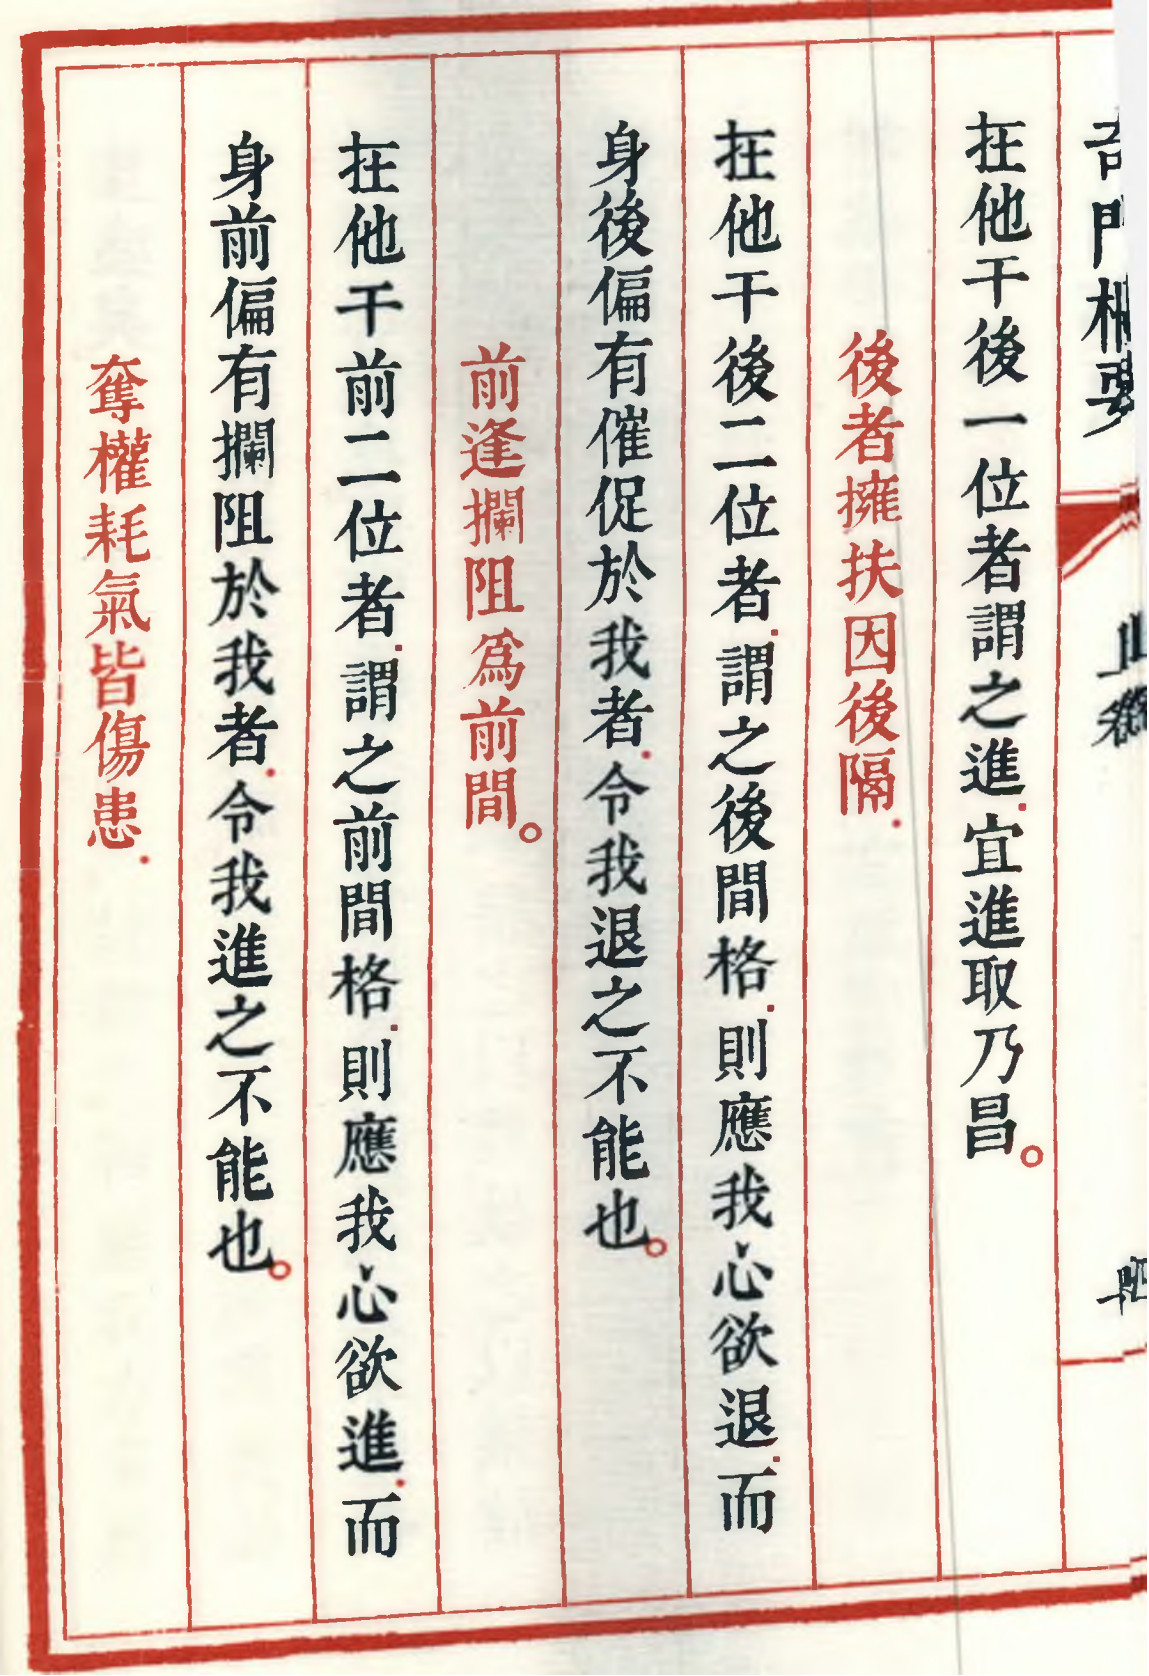 在他干後一位者謂之進.宜進取乃昌。
後者擁扶因後隔.
在他干後二位者.謂之後間格.則應我心欲退.而
身後偏有催促於我者.令我退之不能也。
前逢攔阻為前間。
在他干前二位者.謂之前間格.則應我心欲進.而
身前偏有攔阻於我者.令我進之不能也。
奪權耗氣皆傷患.